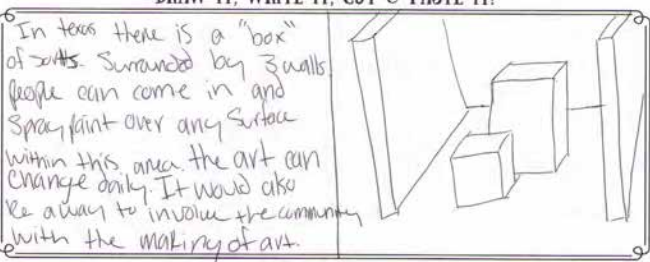 In texas there is a "box"
of sorts. Surrounded by 3 walls
people can come in and
Spray paint over any Surface
within this area. the art can
Change daily. It would also
be a way to involve the community
with the making of art.